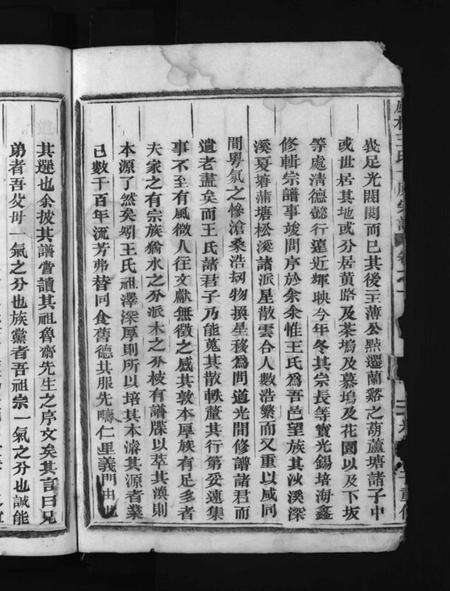 豈足光閥閱而巳其後王薄公㸃遷蘭谿之葫蘆塘諸子中
或世居其地或分居黄路及茶塢及慕塢及花園以及下坂
等處清德懿行遠近輝映今年冬其宗長等寶光錫培海鑫
修輯宗譜事竣問序於余余惟王氏爲吾邑望族其汝溪深
溪夏塘蒲塘松溪諸派星散雲合人數浩繁而又重以咸同
間粤氛之慘滄桑浩刼物換星移爲問道光開修譜諸君而
遺老盡矣而王氏諸君子乃能蒐其散軼釐其行第妥速集
事不至有風微人往文獻無徵之感其敦本厚族有足多者
夫家之有宗族猶水之分派木之分枝有譜牒以萃其渙則
本源了然矣矧王氏祖澤深厚則所以培其本濬其源者葉
已數千百年流芳弗替同食舊德其服先疇仁里義門由此
其選也余披其譜嘗讀其祖魯齋先生之序文矣其言曰兄
弟者吾父母一氣之分也族黨者吾祖宗一氣之分也誠能